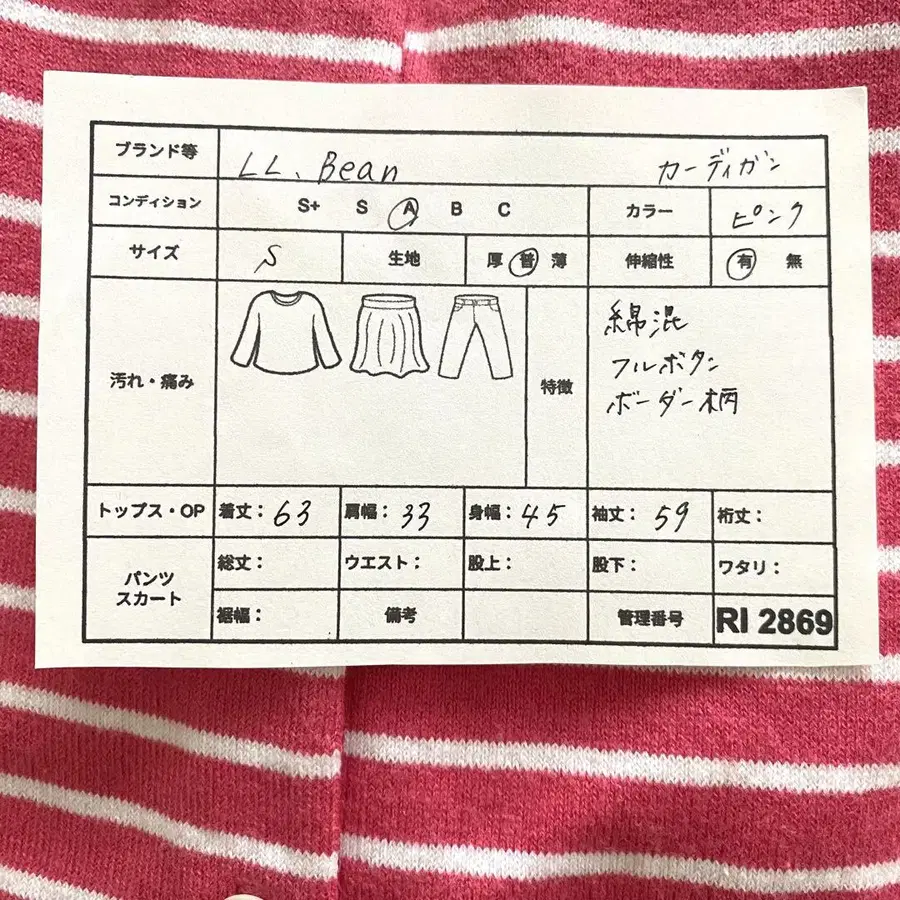 ブランド等 LL. Bean カーディガン
コンディション S+ S A B C カラー ピンク
サイズ S 生地 厚 普 薄 伸縮性 有 無
汚れ・痛み 特徴
綿混
フルボタン
ボーダー柄
トップス・OP 着丈：63 肩幅：33 身幅：45 袖丈：59 裄丈：
パンツ スカート 総丈： ウエスト： 股上： 股下： ワタリ：
裾幅： 備考 管理番号 RI 2869